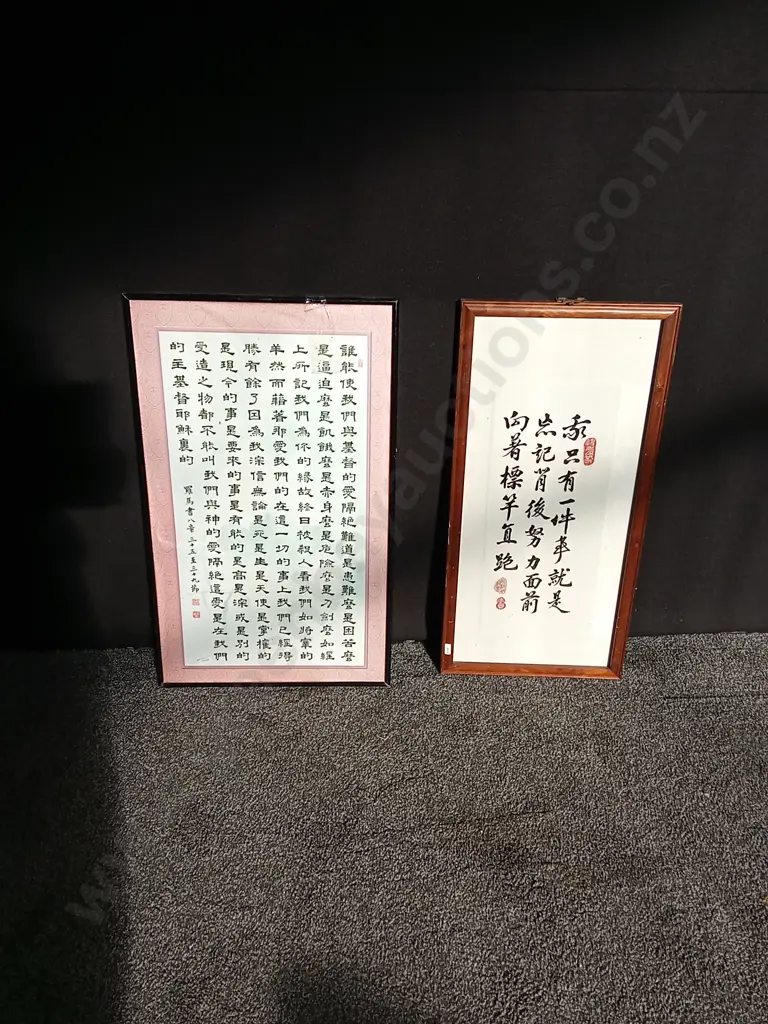 誰能使我們與基督的愛隔絕難道是患難麼是困苦麼
是逼迫麼是飢餓麼是赤身麼是危險麼是刀劍麼如經
上所記我們為你的緣故終日被殺人看我們如將宰的
羊然而藉著那愛我們的在這一切的事上我們已經得
勝有餘了因為我深信無論是死是生是天使是掌權的
是現今的事是要來的事是有能的是高是深或是別的
受造之物都不能叫我們與神的愛隔絕這愛是在我們
的主基督耶穌裏的
羅馬書八章三十五至三十九節
我只有一件事就是
忘記背後努力面前
向著標竿直跑
yauctions.co.nz